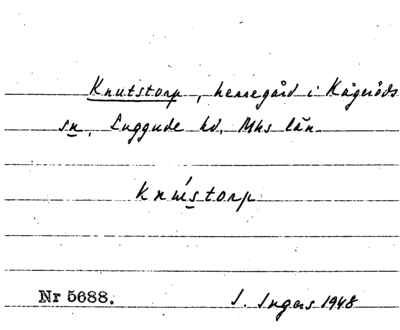 Knutstorp, herregård i Kågeröds
sn, Luggude hd, Mhs län
Knústorp
Nr 5688.
I. Ingers 1948